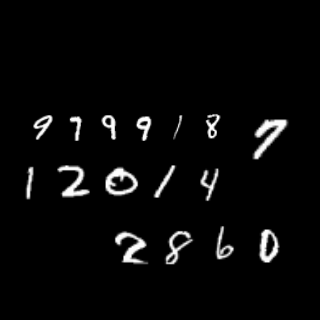 9799187
12014
2860